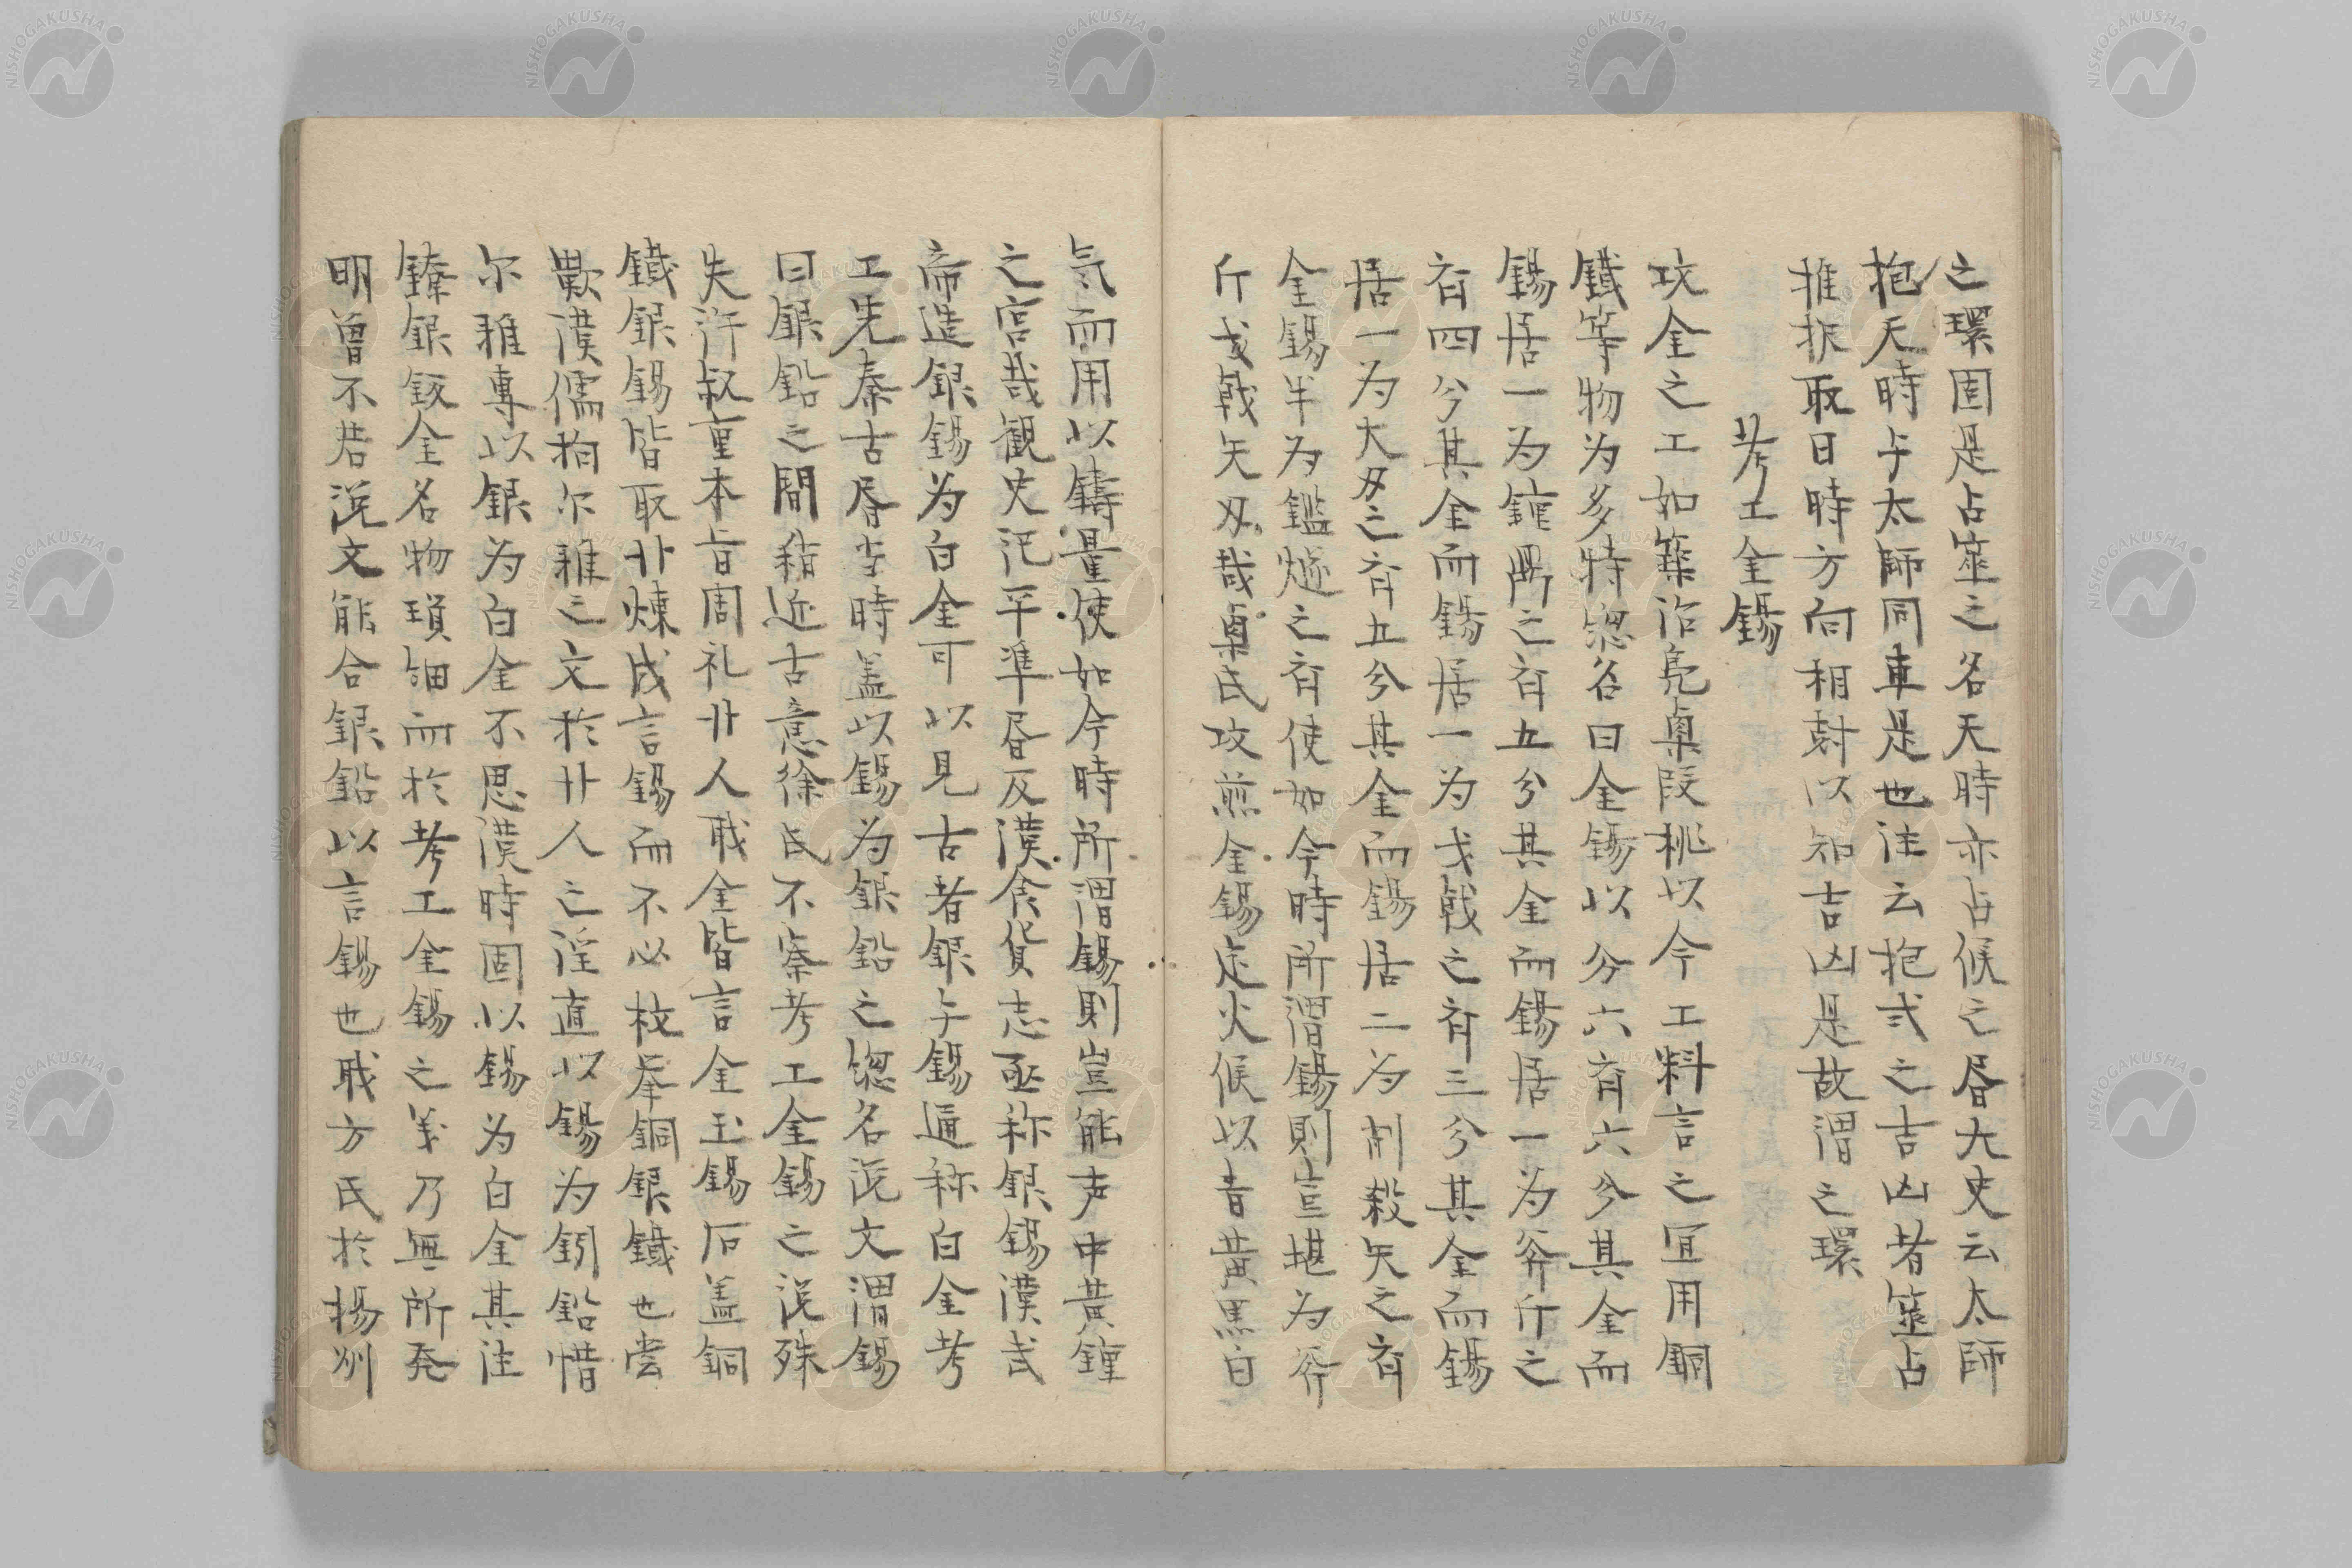 之環固是占筮之名天時亦占候之書大史云太師
抱天時与太師同車是也注云抱式之吉凶者筮占
推択取日時方向相尅以知吉凶是故謂之環
考工金錫
攻金之工如築冶鳧㮚段桃以今工料言之宜用銅
鐵等物為多特惣名曰金錫以分六斉六分其金而
錫居一為鐘鼎之斉五分其金而錫居一為斧斤之
斉四分其金而錫居一為戈戟之斉三分其金而錫
居一為大刃之斉五分其金而錫居二為削殺矢之斉
金錫半為鑑燧之斉使如今時所謂錫則豈堪為斧
斤戈戟矢刃哉㮚氏攻煎金錫定火候以青黃黒白
気而用以鋳量使如今時所謂錫則豈能声中黃鐘
之宮哉観史記平準書及漢食貨志亟称銀錫漢武
帝造銀錫為白金可以見古者銀与錫通称白金考
工先秦古書当時盖以錫為銀鉛之惣名説文謂錫
曰銀鉛之間稍近古意徐氏不察考工金錫之説殊
失許叔重本旨周礼卝人職金皆言金玉錫石盖銅
鐵銀錫皆取卝煉成言錫而不必枚挙銅銀鐵也嘗
歎漢儒拘尓雅之文於卝人之注直以錫為釰鉛惜
尓雅専以銀為白金不思漢時固以錫為白金其注
鐐銀鈑金名物瑣細而於考工金錫之義乃無所発
明曽不若説文能合銀鉛以言錫也職方氏於揚州